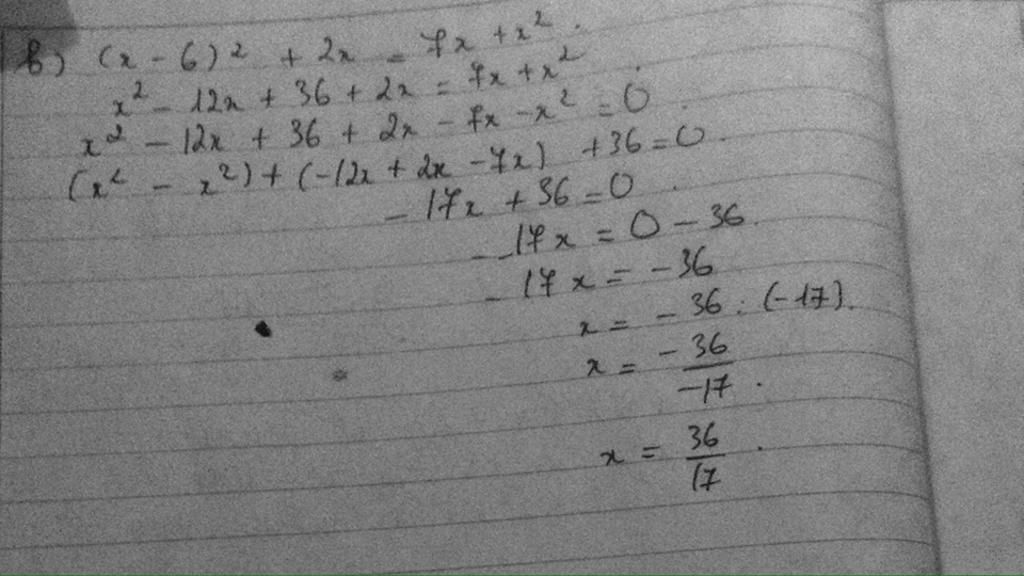 b) (x - 6)² + 2x = 7x + x².
x² - 12x + 36 + 2x = 7x + x²
x² - 12x + 36 + 2x - 7x - x² = 0.
(x² - x²) + (-12x + 2x - 7x) + 36 = 0.
- 17x + 36 = 0.
- 17x = 0 - 36.
- 17x = -36
x = - 36 : (-17).
x = -36/-17.
x = 36/17.